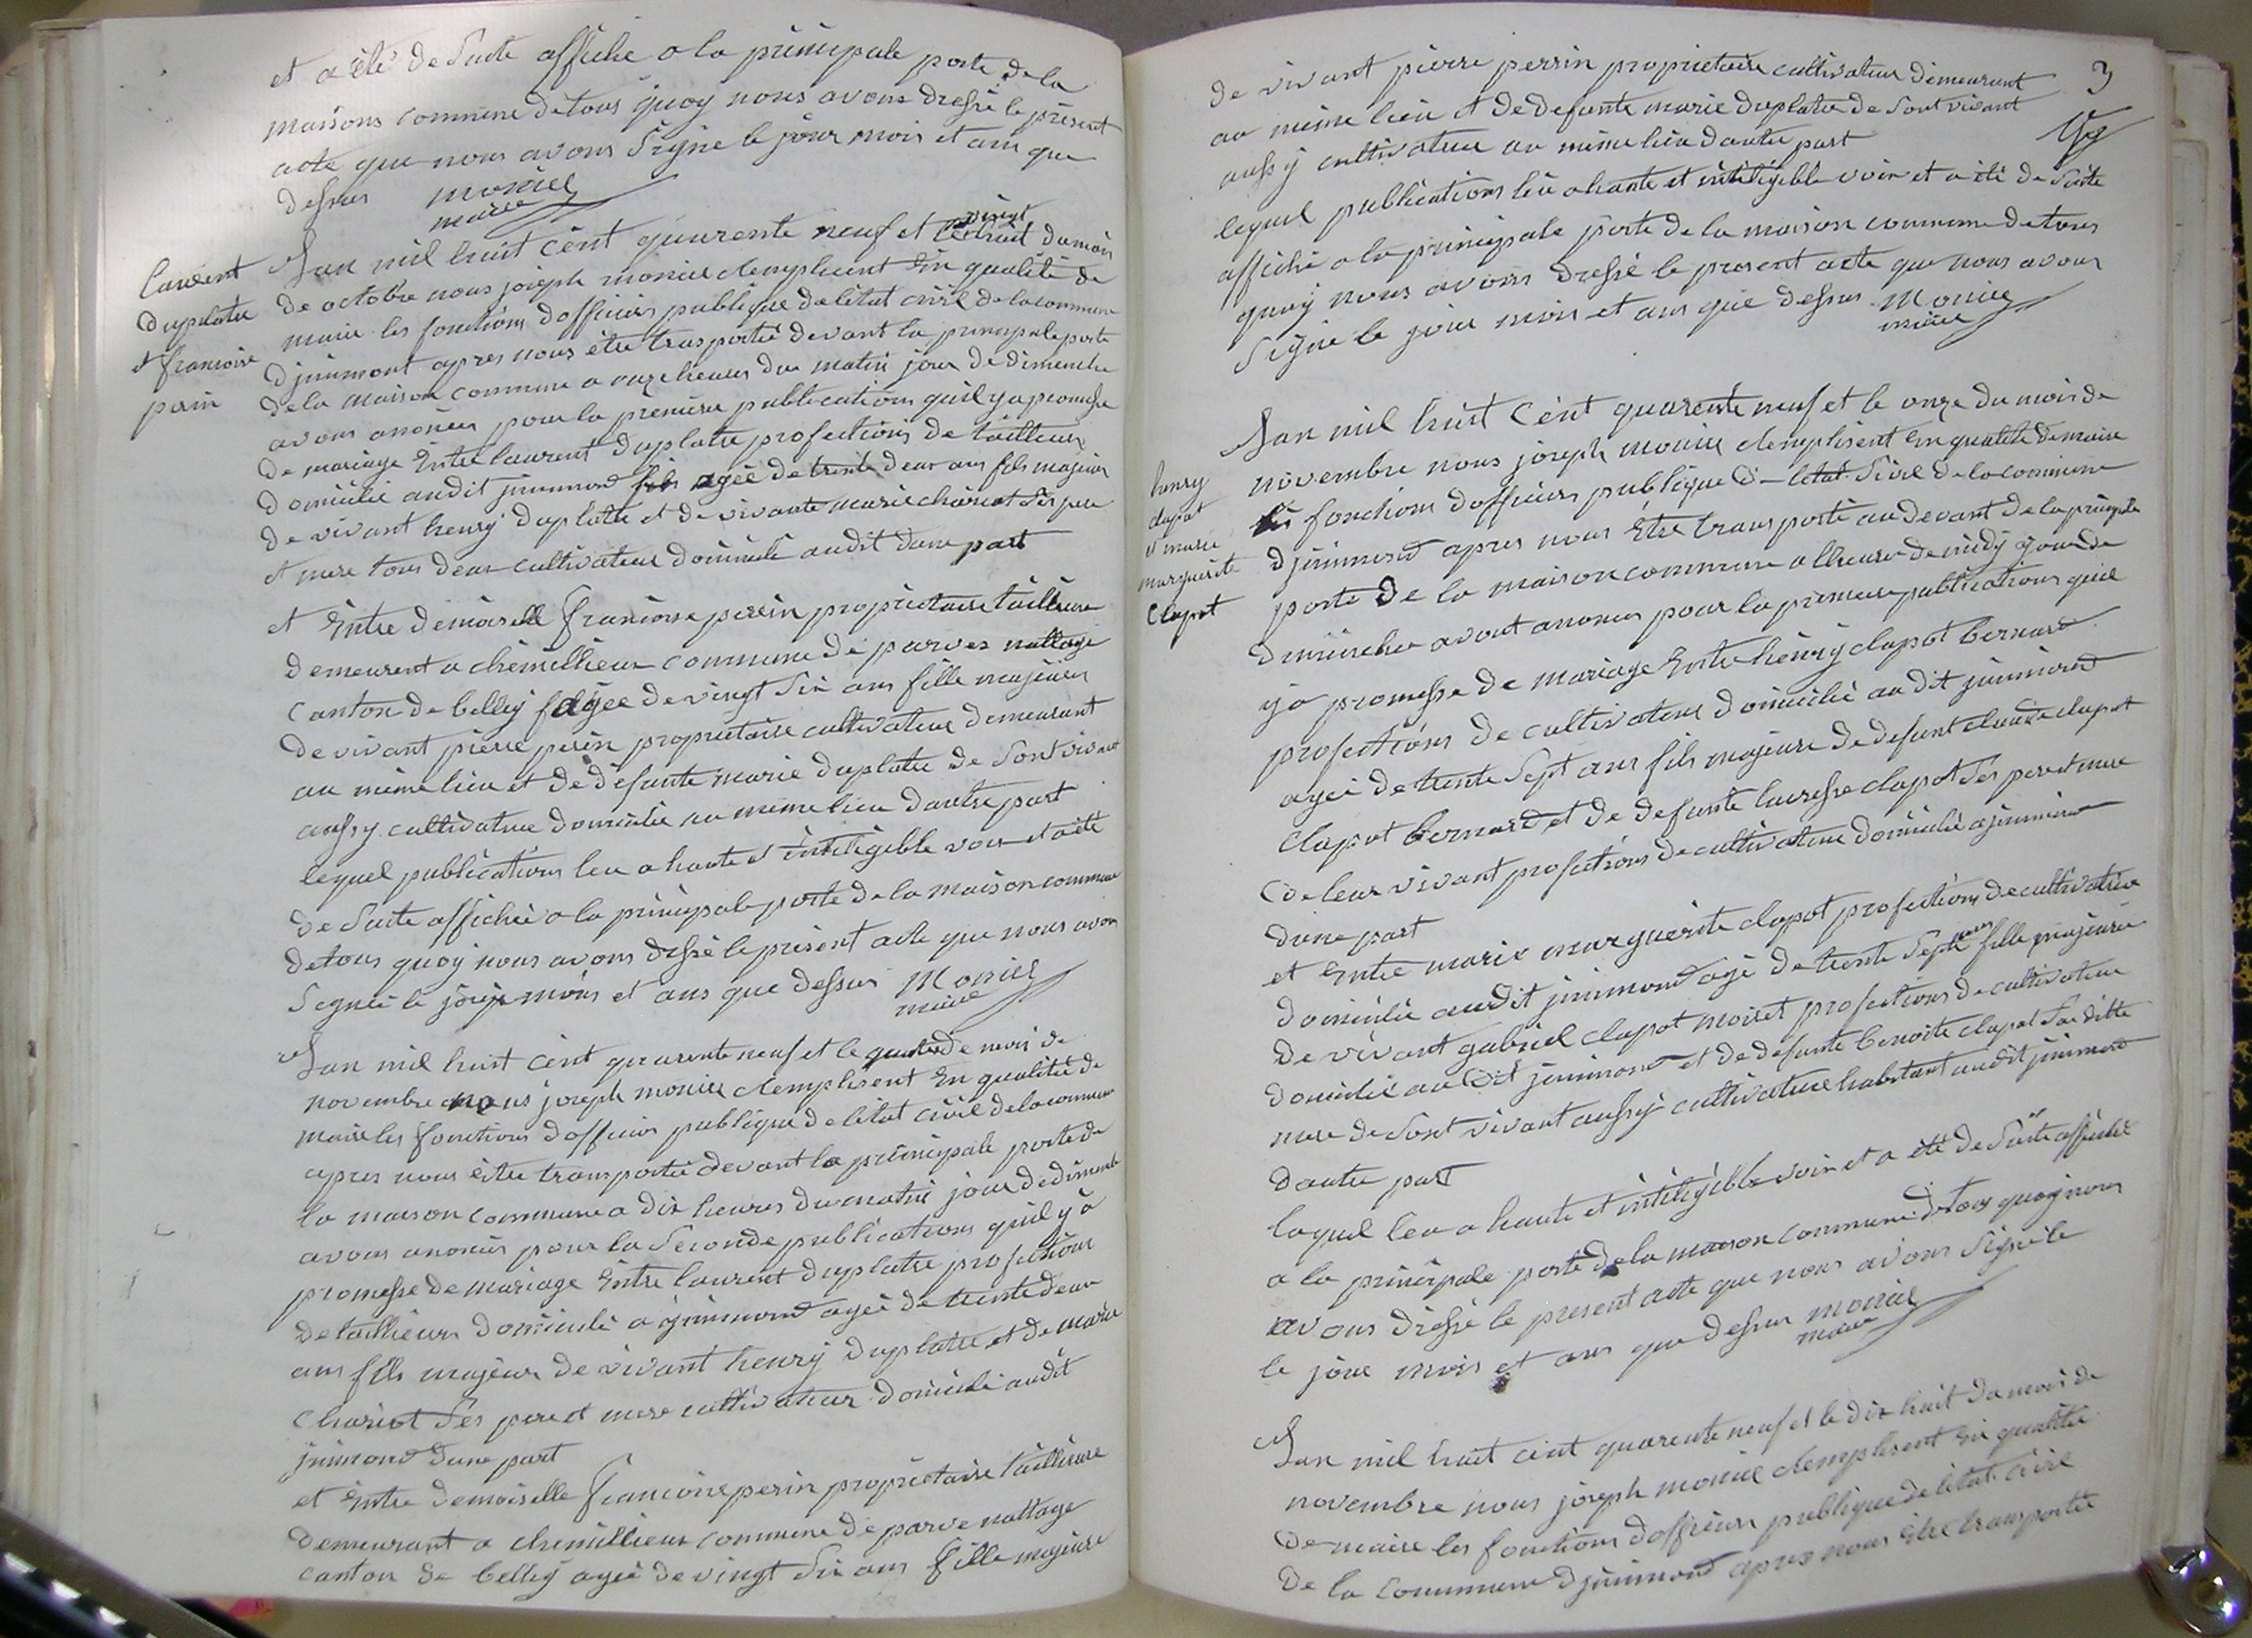 et a été de Suite affiché a la principale porte de la
maisons commune de tous quoy nous avons dressé le présent
acte que nous avons Signé le jour mois et ans que
dessus monier
maire
Laurent
duplatre
et francoise
perin
Lan mil huit cent quarente neuf et le vingt huit du mois
de octobre nous joseph monier Remplisent En qualité de
maire les fonctions dofficier publique de létat civil de la commune
djuimont apres nous être trasporté devant la principale porte
de la maison commune a onze heures du matin jour de dimenche
avons anoncer pour la premiere publications quil y a promesse
de mariage Entre laurent duplatre profections de tailleur
domicilié audit juimond fils agée de trente deux ans fils majeur
de vivant henry duplatre et de vivante marie chariot Ses pere
et mere tous deux cultivateur domicilié audit dune part
et Entre demoiselle francoise perrin proprietaire tailleuse
demeurent a chemillieux commune de parves nattage
canton de belley f agée de vingt Six ans fille majeure
de vivant pierre perin proprietaire cultivateur demeurant
au même lieu et de défunte marie duplatre de Sont vivant
aussy cultivatrice domicilié au même lieu dautre part
lequel publications leu a haute et inteligible voix et a été
de Suite affiché a la principale porte de la maison commune
de tous quoy nous avons dressé le présent acte que nous avons
Signée le jour mois et ans que dessus Monier
maire
Lan mil huit cent quarente neuf et le quatre de mois de
novembre nous joseph monier Remplisent En qualitée de
maire les fonctions dofficier publique de létat civil de la commune
apres nous être transporté devant la principale porte de
la maison commune a dix heures du matin jour de dimenche
avons anoncer pour la Seconde publications quil y a
promesse de mariage Entre laurent duplatre profections
de tailleur domicilié a juimond agée de trente deux
ans fils majeur de vivant henry duplatre et de marie
chariot Ses pere et mere cultivateur domicilié audit
juimond dune part
et Entre demoiselle francoise perin proprietaire tailleuse
demeurant a chemillieux commune de parve nattage
canton de belley agée de vingt Six ans fille majeure
3
de vivant pierre perrin proprietaire cultivateur demeurant
au même lieu et de defunte marie duplatre de Sont vivant
aussy cultivatrice au même lieu dautre part
lequel publications leu a haute et inteligible voix et a été de Suite
affiché a la principale porte de la maison commune de tous
quoy nous avons dressé le present acte que nous avons
Signé le jour mois et ans que dessus Monier
maire
henry
clapot
et marie
marguerite
Clapot
Lan mil huit Cent quarente neuf et le onze du mois de
novembre nous joseph monier Remplisent En qualité de maire
les fonctions dofficier publique de létat Sivil de la commune
djuimond apres nous Etre transporté au devant de la principale
porte de la maison commune a lheure de midy jour de
dimenche avont anoncer pour la premiere publications quil
y a promesse de mariage Entre henry clapot bernard
profections de cultivateur domicilié audit juimond
agée de trente Sept ans fils majeure de defunt claude clapot
Clapot bernard et de defunte clapot Ses pere et mere
de leur vivant profections de cultivateur domicilié a juimond
dune part
et Entre marie marguerite clapot profections de cultivatrice
domicilié audit juimond agé de trente Septe ans fille majeure
de vivant gabriel clapot moiret profections de cultivateur
domicilié audit juimond et de defunte benoite clapot Sa ditte
mere de Sont vivant aussy cultivatrice habitant audit juimond
dautre part
laquel leu a haute et inteligible voix et a été de Suite affiché
a la principale porte de la maison commune de tous quoy nous
avons dressé le present acte que nous avons Signé le
le jour mois et ans que dessus monier
maire
Lan mil huit cent quarente neuf et le dix huit du mois de
novembre nous joseph monier Remplisent En qualitée
de maire les fonctions dofficiers publique de létat civil
de la Commune djuimond apres nous Etre transportée